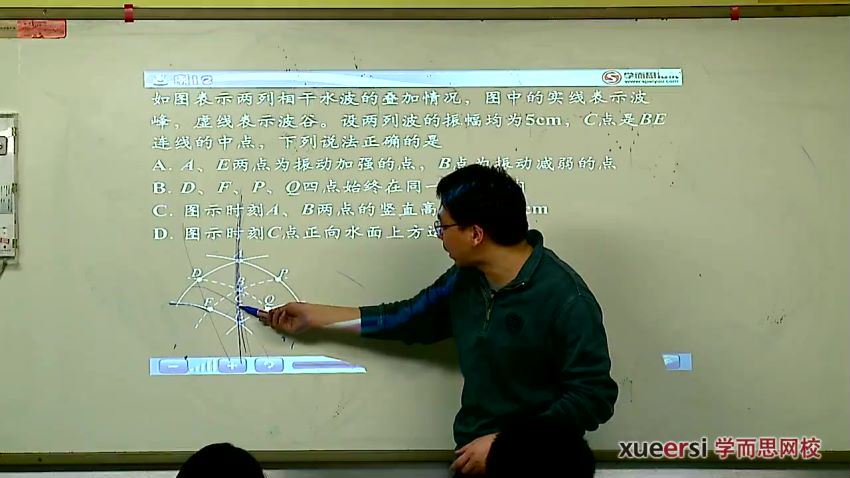 例12
学而思
如图表示两列相干水波的叠加情况，图中的实线表示波
峰，虚线表示波谷。设两列波的振幅均为5cm，C点是BE
连线的中点，下列说法正确的是
A. A、E两点为振动加强的点，B点为振动减弱的点
B. D、F、P、Q四点始终在同一
C. 图示时刻A、B两点的竖直高 cm
D. 图示时刻C点正向水面上方运
D P
F Q
xueersi 学而思网校